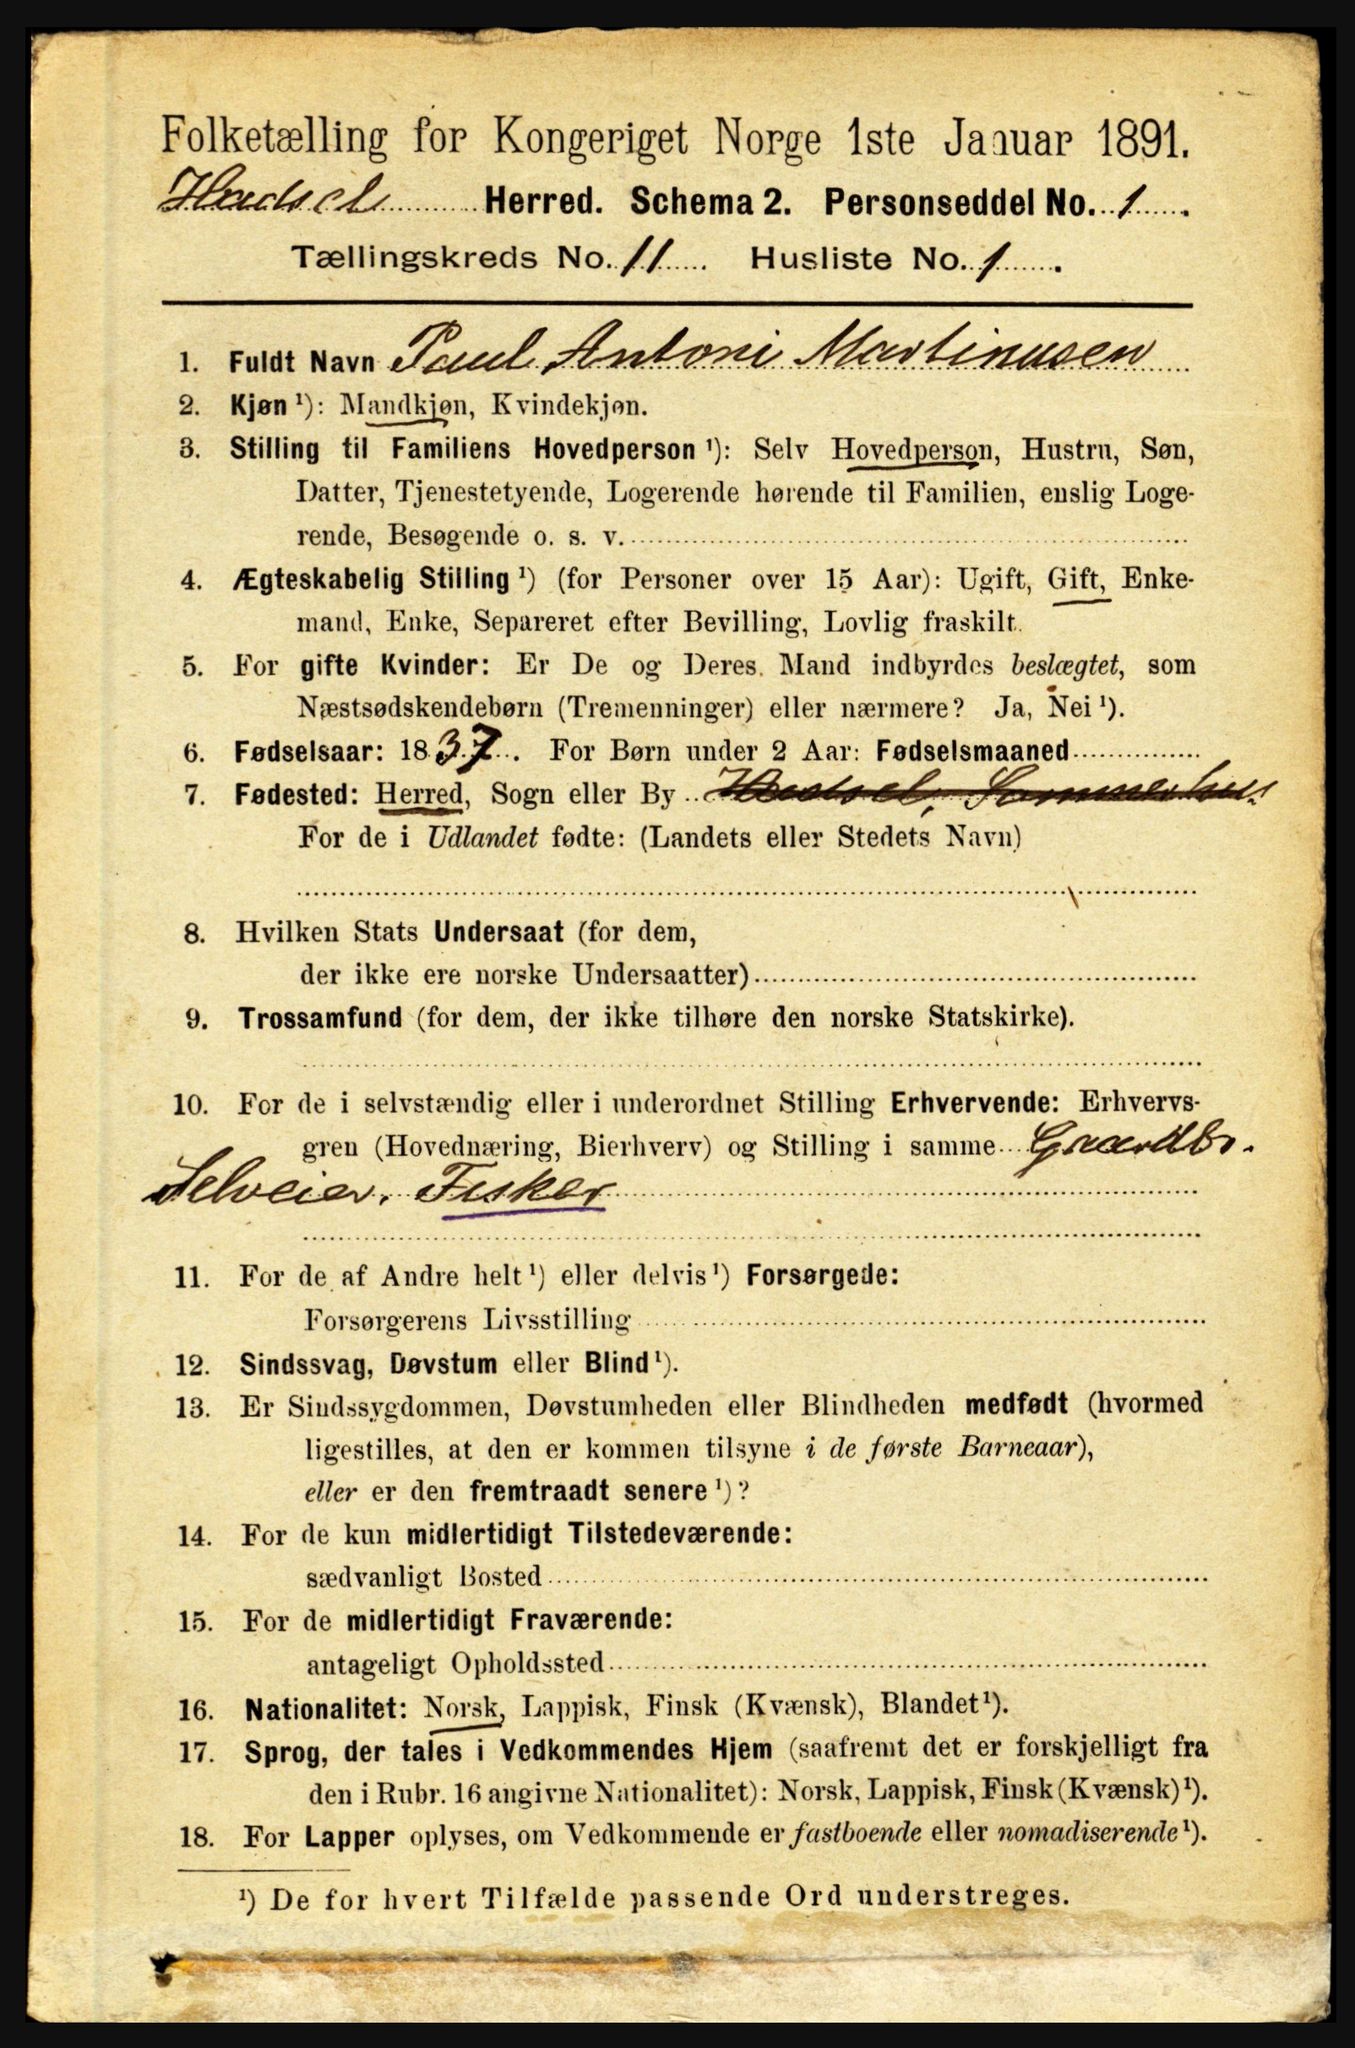 Folketælling for Kongeriget Norge 1ste Januar 1891.
Hadsel Herred. Schema 2. Personseddel No. 1.
Tællingskreds No. 11. Husliste No. 1.
1. Fuldt Navn Paul Antoni Martinusen
2. Kjøn ¹): Mandkjøn, Kvindekjøn.
3. Stilling til Familiens Hovedperson ¹): Selv Hovedperson, Hustru, Søn,
Datter, Tjenestetyende, Logerende hørende til Familien, enslig Loge-
rende, Besøgende o. s. v.
4. Ægteskabelig Stilling ¹) (for Personer over 15 Aar): Ugift, Gift, Enke-
mand, Enke, Separeret efter Bevilling, Lovlig fraskilt.
5. For gifte Kvinder: Er De og Deres Mand indbyrdes beslægtet, som
Næstsødskendebørn (Tremenninger) eller nærmere? Ja, Nei ¹).
6. Fødselsaar: 1837. For Børn under 2 Aar: Fødselsmaaned
7. Fødested: Herred, Sogn eller By Hadsel, Sommerhus
For de i Udlandet fødte: (Landets eller Stedets Navn)
8. Hvilken Stats Undersaat (for dem,
der ikke ere norske Undersaatter)
9. Trossamfund (for dem, der ikke tilhøre den norske Statskirke).
10. For de i selvstændig eller i underordnet Stilling Erhvervende: Erhvervs-
gren (Hovednæring, Bierhverv) og Stilling i samme Gaardbr.
Selveier. Fisker
11. For de af Andre helt ¹) eller delvis ¹) Forsørgede:
Forsørgerens Livsstilling
12. Sindssvag, Døvstum eller Blind ¹).
13. Er Sindssygdommen, Døvstumheden eller Blindheden medfødt (hvormed
ligestilles, at den er kommen tilsyne i de første Barneaar),
eller er den fremtraadt senere ¹)?
14. For de kun midlertidigt Tilstedeværende:
sædvanligt Bosted
15. For de midlertidigt Fraværende:
antageligt Opholdssted
16. Nationalitet: Norsk, Lappisk, Finsk (Kvænsk), Blandet ¹).
17. Sprog, der tales i Vedkommendes Hjem (saafremt det er forskjelligt fra
den i Rubr. 16 angivne Nationalitet): Norsk, Lappisk, Finsk (Kvænsk) ¹).
18. For Lapper oplyses, om Vedkommende er fastboende eller nomadiserende ¹).
¹) De for hvert Tilfælde passende Ord understreges.